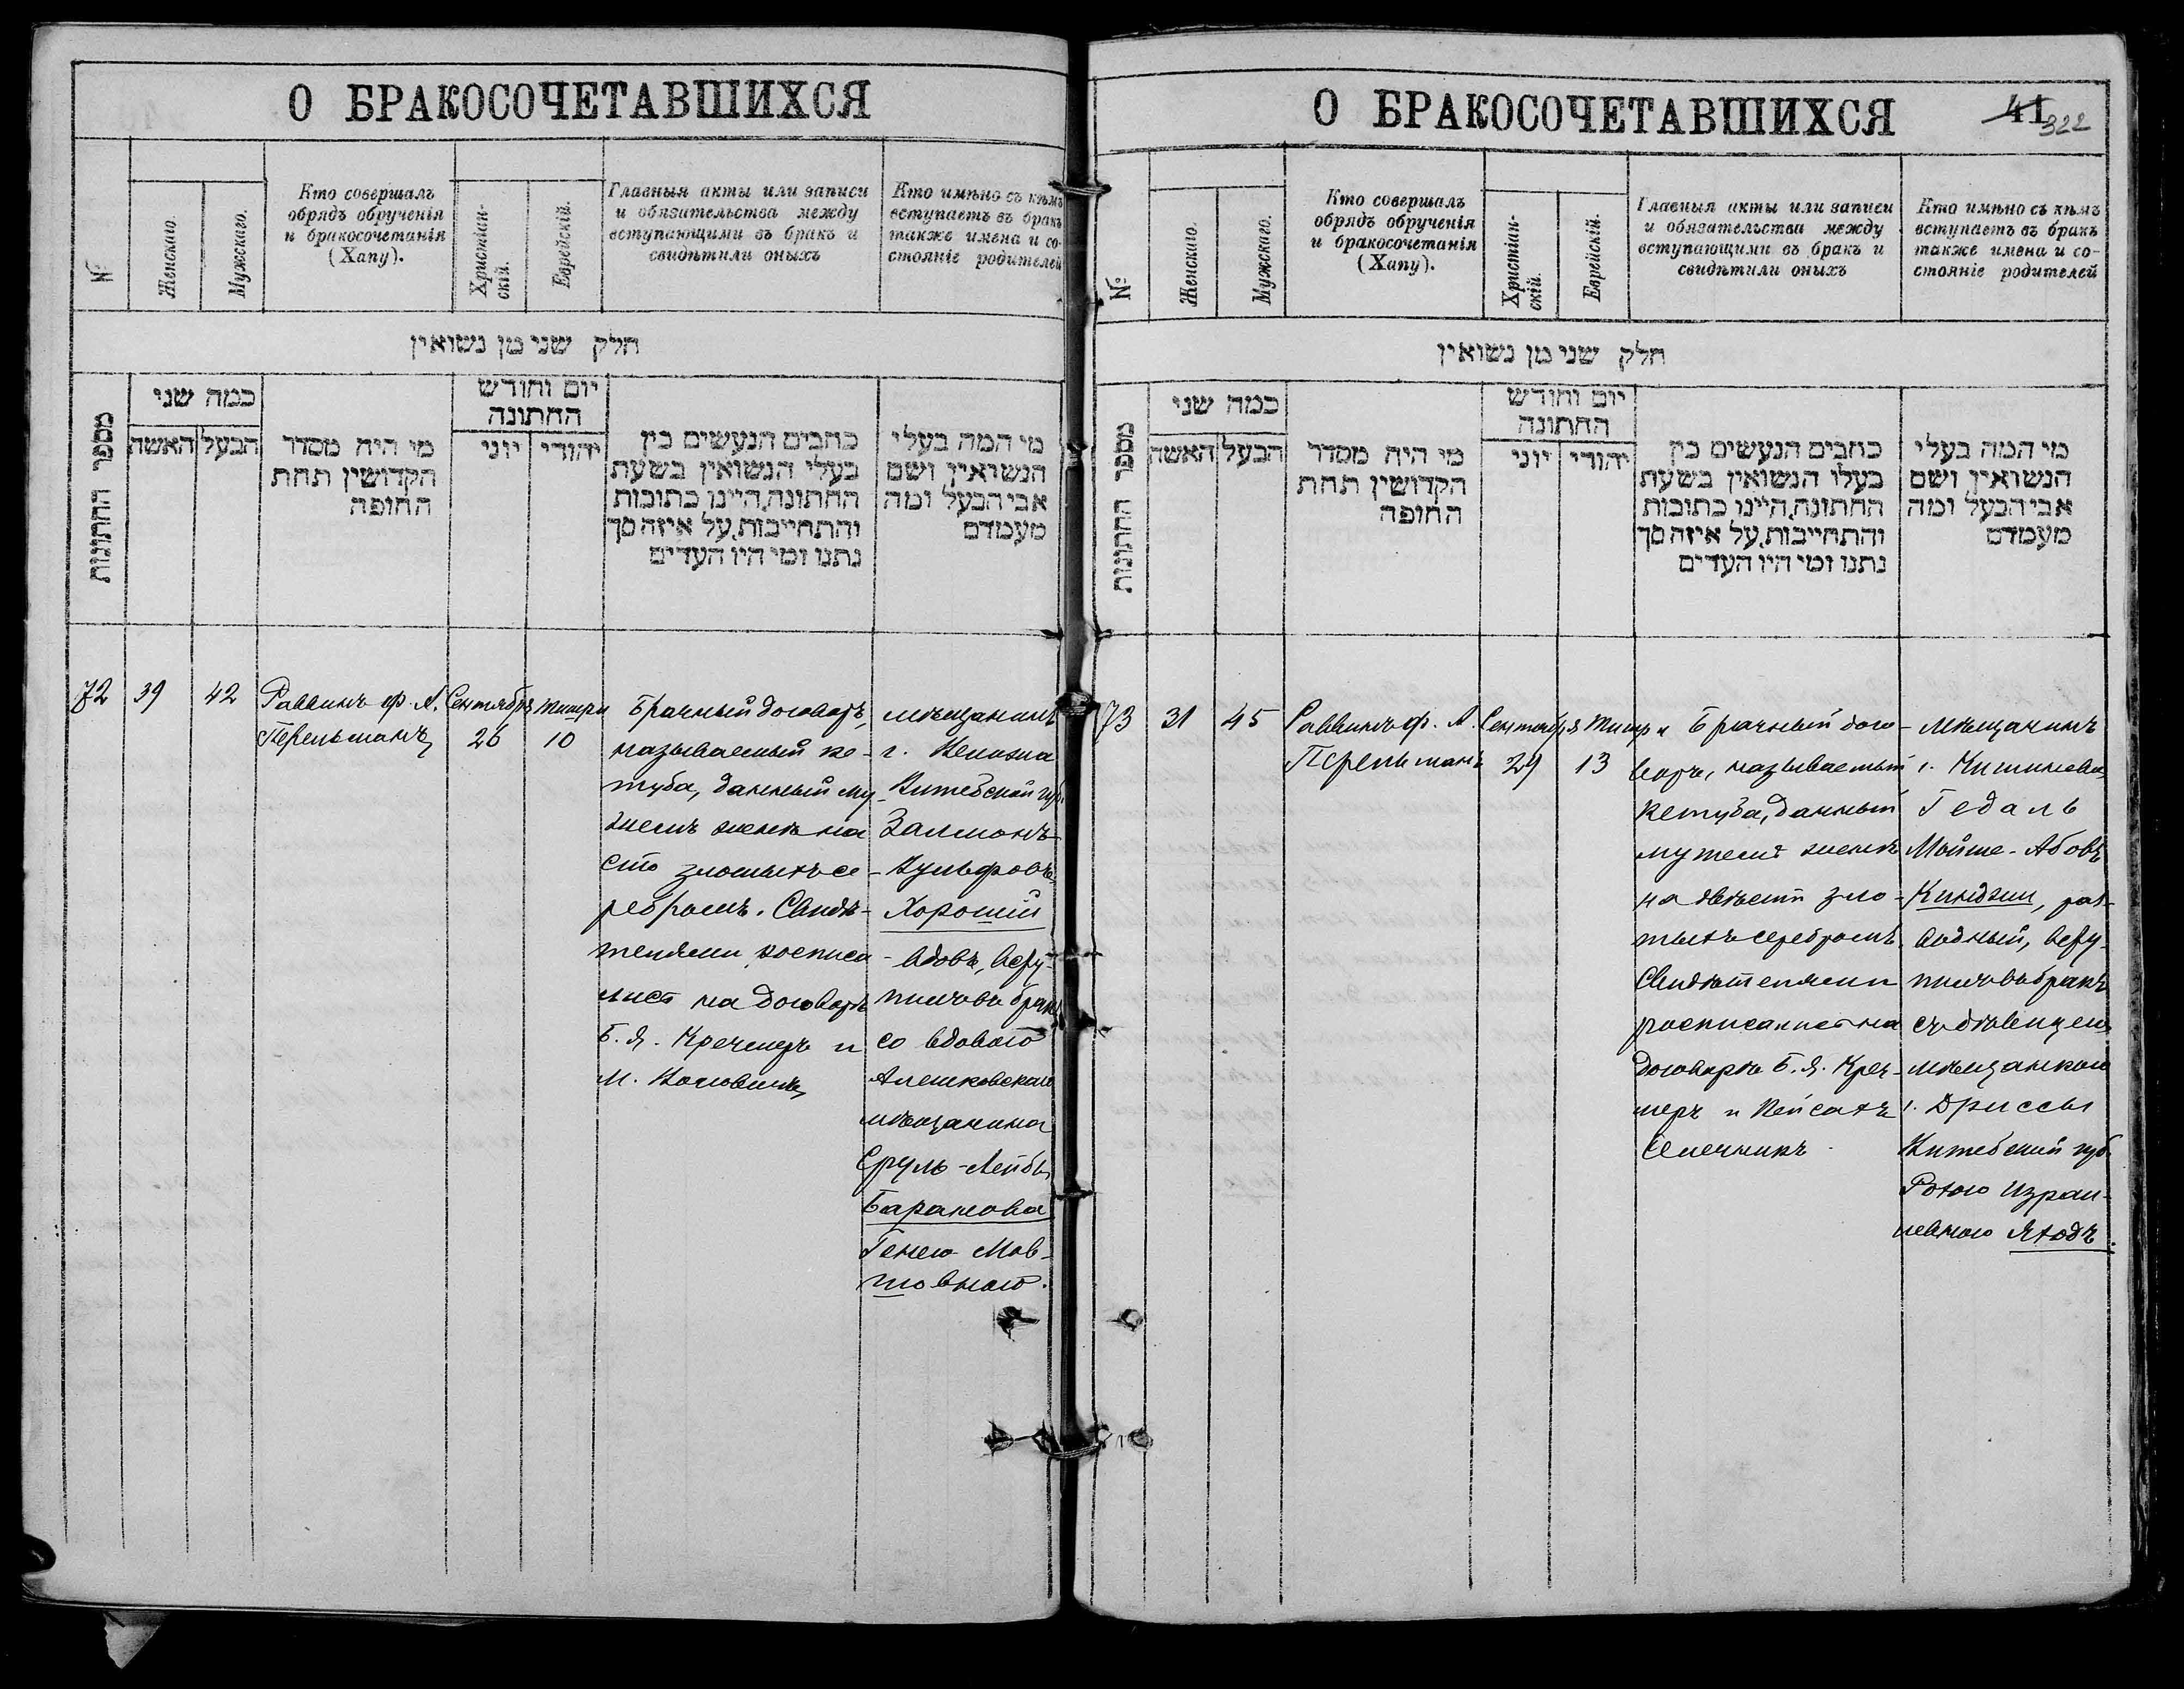 О БРАКОСОЧЕТАВШИХСЯ
№
Женскаго.
Мужскаго.
Кто совершалъ
обрядъ обрученія
и бракосочетанія
(Хапу).
Христіан-
скій.
Еврейскій.
Главныя акты или записи
и обязательства между
вступающими въ бракъ и
свидѣтили оныхъ
Кто имѣно съ кѣмъ
вступаетъ въ бракъ
также имена и со-
стояніе родителей
חלק שני מן נשואין
מספר החתונות
כמה שני
האשה
הבעל
מי היה מסדר
הקדושין תחת
החופה
יום וחודש
החתונה
יוני
יהודי
כתבים הנעשים בין
בעלי הנשואין בשעת
החתונה,היינו כתובות
והתחייבות,על איזה סך
נתנו ומי היו העדים
מי המה בעלי
הנשואין ושם
אבי הבעל ומה
מעמדם
72
39
42
Раввинъ ф. А.
Перельманъ
Сентября
26
Тишри
10
Брачный договоръ,
называемый ке-
туба, данный му-
жемъ женѣ на
сто злотыхъ се-
ребромъ. Свидѣ-
телями росписа-
лись на договорѣ
Б. Я. Кречмеръ и
мѣщанинъ
г. Велижа
Витебской губ.
Залмонъ-
Вульфовъ
Хороший
вдовъ, всту-
пилъ въ бракъ
со вдовою
Алешковскаго
мѣщанина
Сруль-Лейбы
Баранова
Генею Мов-
шовною.
О БРАКОСОЧЕТАВШИХСЯ
41
322
№
Женскаго.
Мужскаго.
Кто совершалъ
обрядъ обрученія
и бракосочетанія
(Хапу).
Христіан-
скій.
Еврейскій.
Главныя акты или записи
и обязательства между
вступающими въ бракъ и
свидѣтили оныхъ
Кто имѣно съ кѣмъ
вступаетъ въ бракъ
также имена и со-
стояніе родителей
חלק שני מן נשואין
מספר החתונות
כמה שני
האשה
הבעל
מי היה מסדר
הקדושין תחת
החופה
יום וחודש
החתונה
יוני
יהודי
כתבים הנעשים בין
בעלו הנשואין בשעת
החתונה,היינו כתובות
והתחייבות,על איזה סך
נתנו ומי היו העדים
מי המה בעלי
הנשואין ושם
אבי הבעל ומה
מעמדם
73
31
45
Раввинъ ф. А.
Перельманъ
Сентября
29
Тишри
13
Брачный дого-
воръ, называемый
кетуба, данный
мужемъ женѣ
на двѣсти зло-
тыхъ серебромъ.
Свидѣтелями
росписались на
договорѣ Б. Я. Креч-
меръ и Пейсахъ
Семечникъ
мѣщанинъ
г. Кишинева
Гедаль
Мойше-Абовъ
Кинджи, раз-
водный, всту-
пилъ въ бракъ
съ дѣвицею
мѣщанкою
г. Дриссы
Витебской губ.
Рохою Израи-
левною Яходъ.